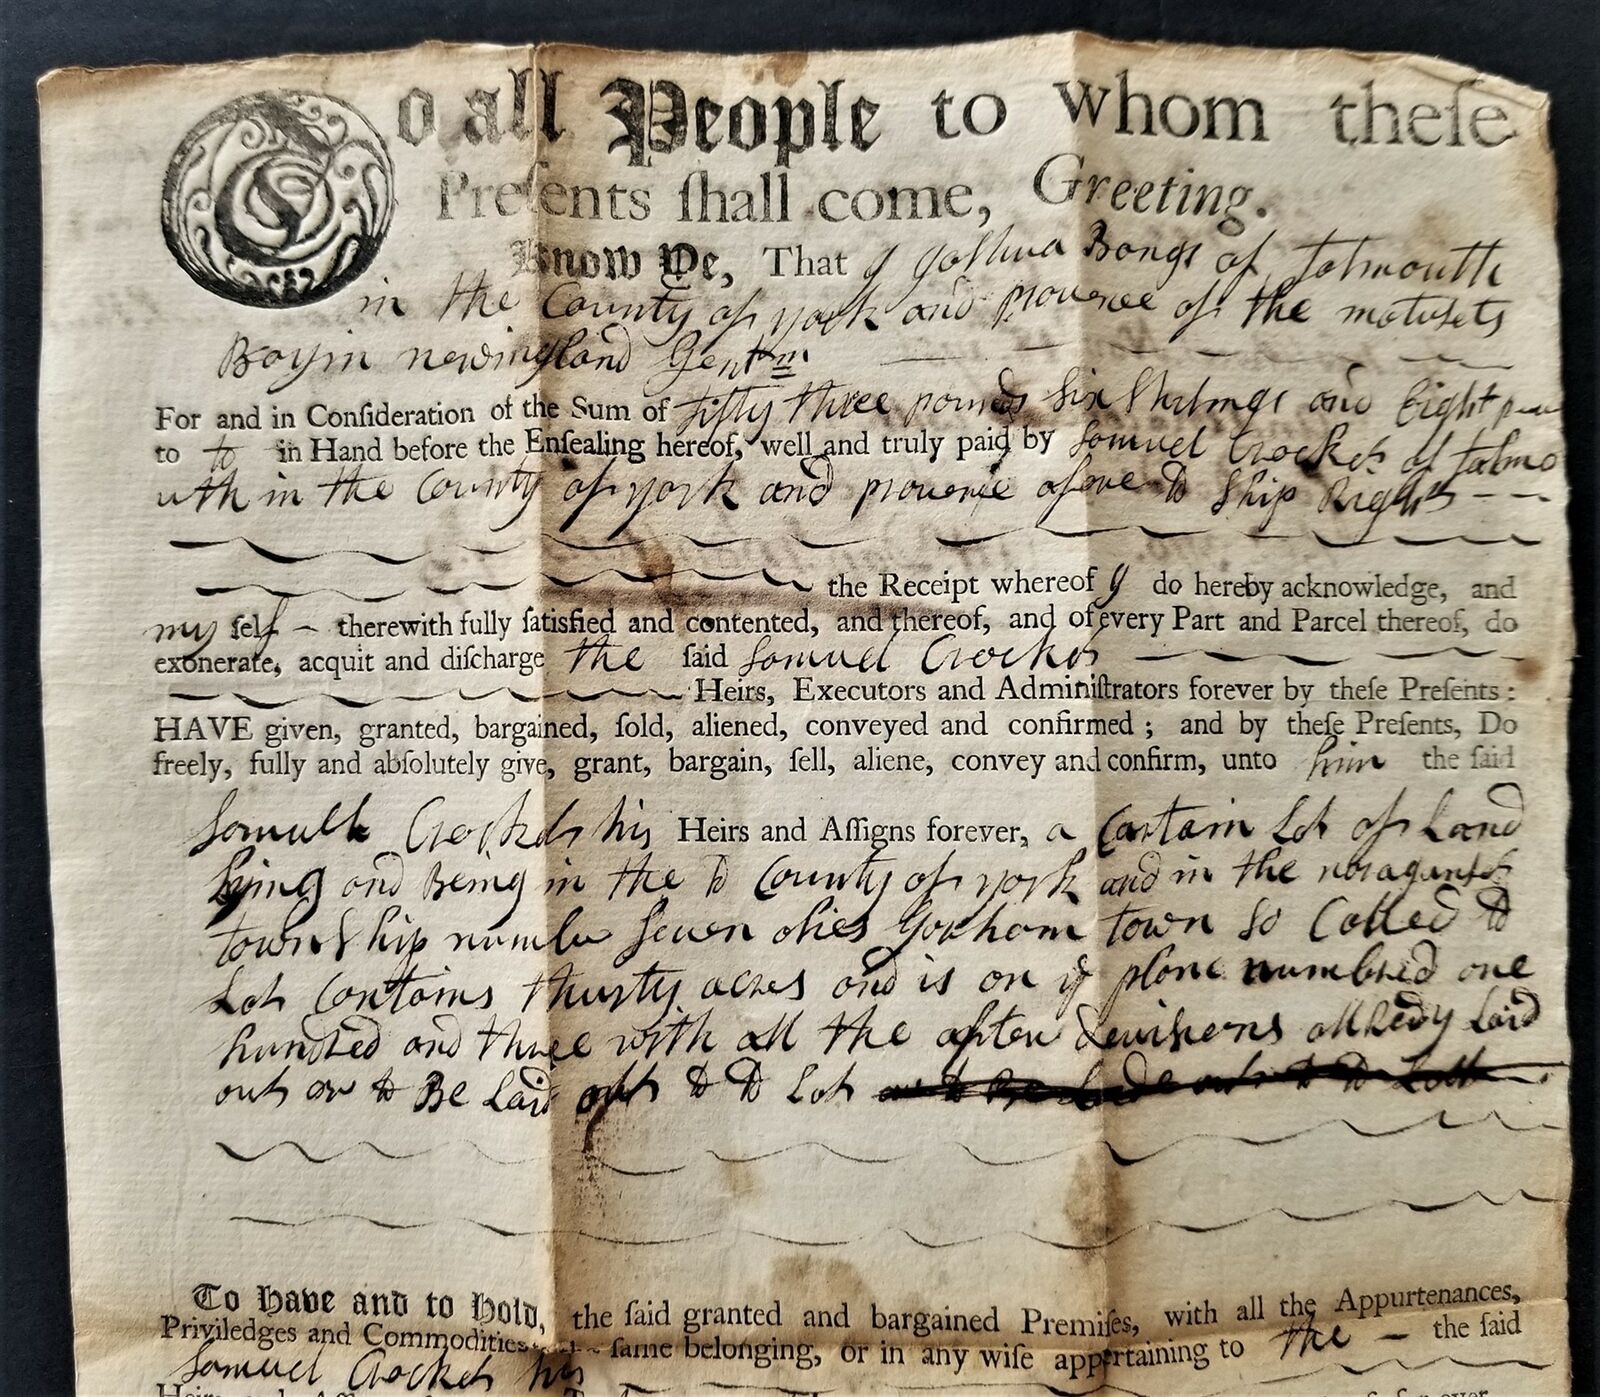 To all People to whom theſe
Preſents ſhall come, Greeting.
Know Ye, That I Joshua Bangs of falmouth
in the County of york and prouence of the matusets
Bayin newingland Gentm
For and in Conſideration of the Sum of fifty three pounds Six Shilings and Eight
to to in Hand before the Enſealing hereof, well and truly paid by Samuel Crocket of falmo
uth in the County of york and prouence Ship Right
the Receipt whereof I do hereby acknowledge, and
my ſelf therewith fully ſatisfied and contented, and thereof, and of every Part and Parcel thereof, do
exonerate, acquit and diſcharge the ſaid Samuel Crocket
Heirs, Executors and Adminiſtrators forever by theſe Preſents :
HAVE given, granted, bargained, ſold, aliened, conveyed and confirmed ; and by theſe Preſents, Do
freely, fully and abſolutely give, grant, bargain, ſell, aliene, convey and confirm, unto him the ſaid
Samuell Crocket his Heirs and Aſſigns forever, a Cartain Lot of Land
Lying and Being in the sd County of york and in the naraganset
township number Seuen alies Gorham town So Called sd
Lot Contains thurty acres and is on ye plane numbred one
hundred and three with all the after deuisions allredy Laid
out or to Be Laid out to sd Lot
To Have and to Hold, the ſaid granted and bargained Premiſes, with all the Appurtenances,
Priviledges and Commodities ſame belonging, or in any wiſe appertaining to the the ſaid
Samuel Crocket his